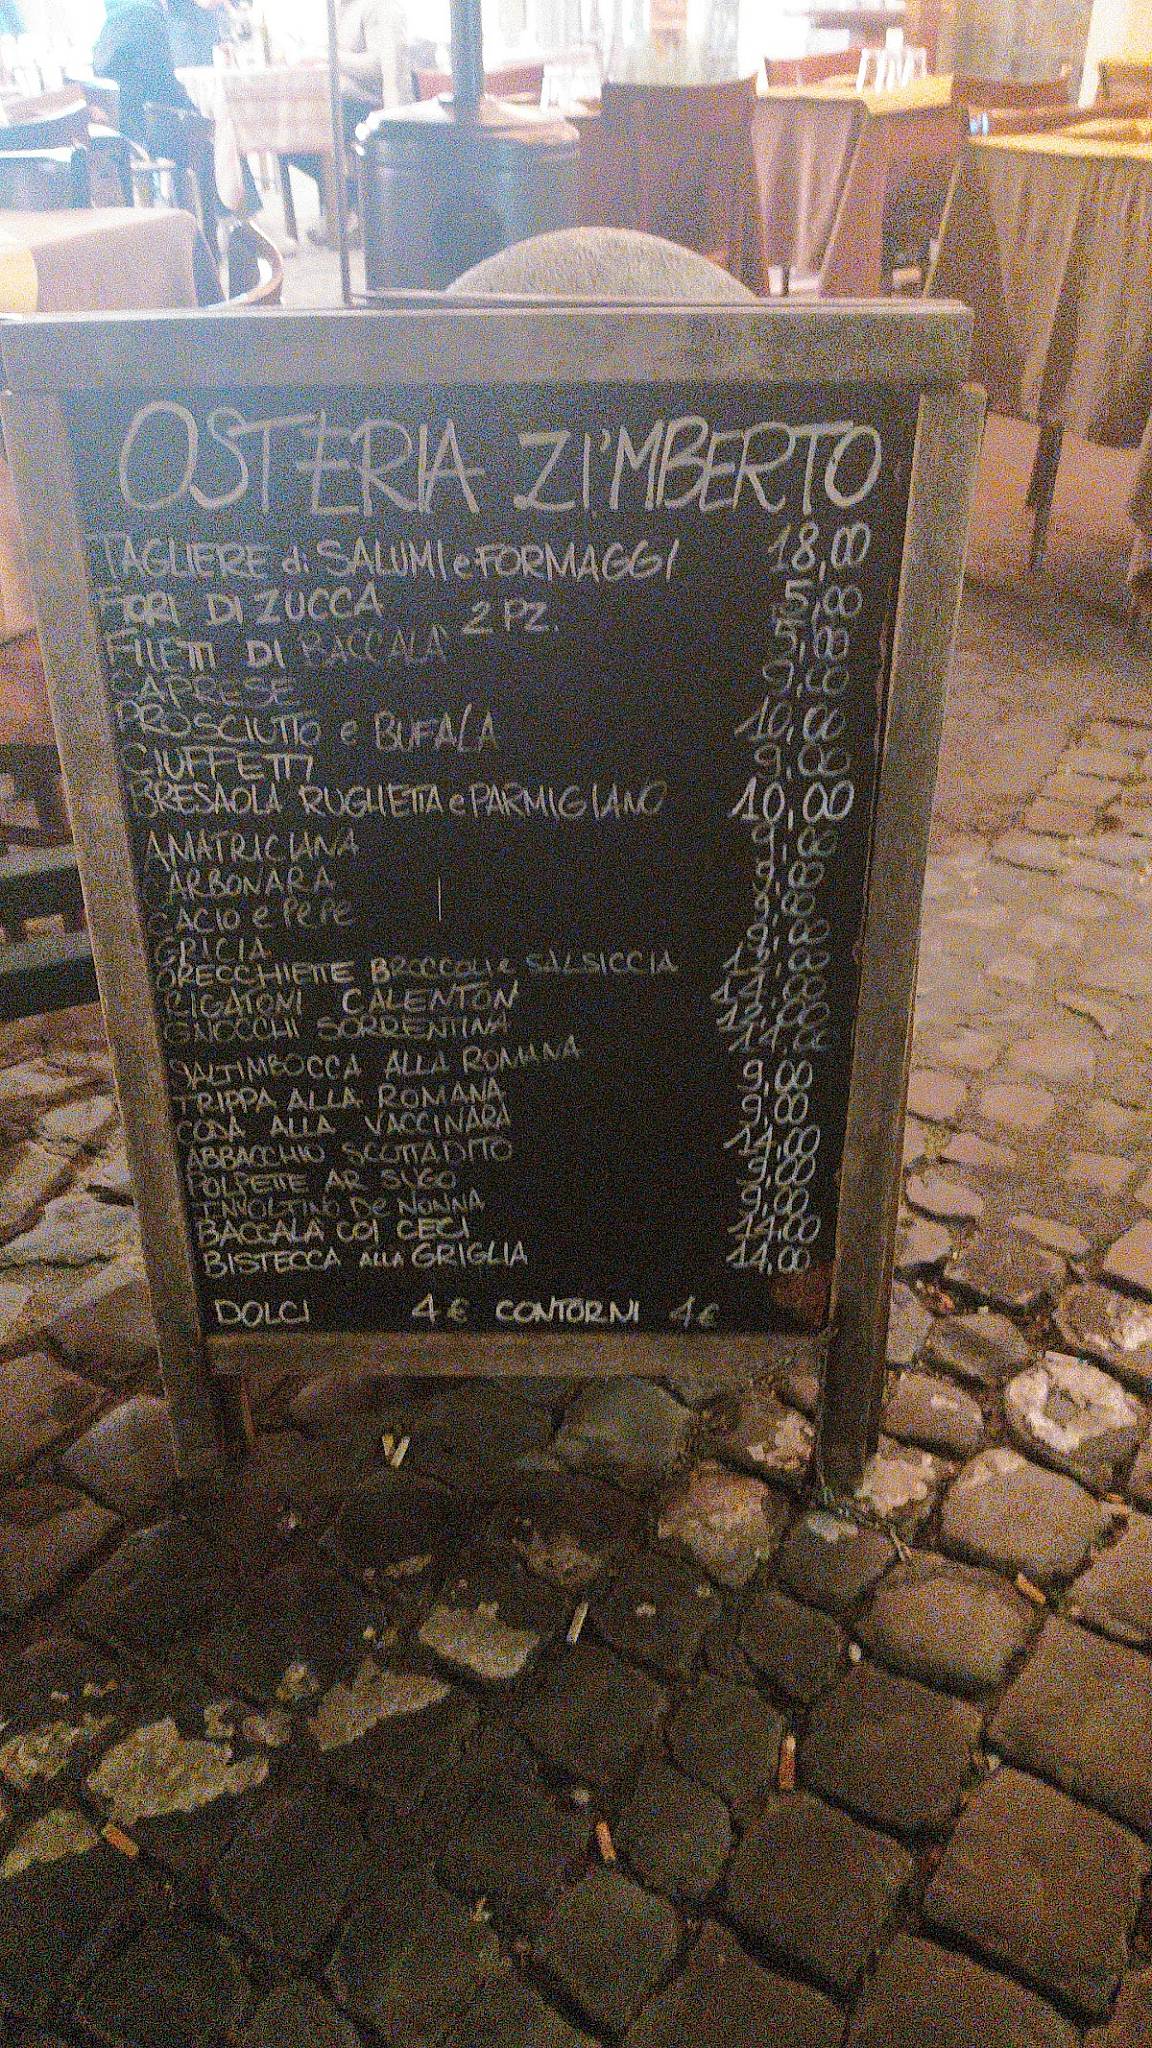 OSTERIA ZI'MBERTO
TAGLIERE di SALUMI e FORMAGGI 18,00
FIORI DI ZUCCA 2 PZ. 5,00
FILETTI DI BACCALÀ 5,00
CAPRESE 9,00
PROSCIUTTO e BUFALA 10,00
CIUFFETTI 9,00
BRESAOLA RUGHETTA e PARMIGIANO 10,00
AMATRICIANA 9,00
CARBONARA 9,00
CACIO e PEPE 9,00
GRICIA 9,00
ORECCHIETTE BROCCOLI e SALSICCIA
RIGATONI CALENTON
GNOCCHI SORRENTINA
SALTIMBOCCA ALLA ROMANA
TRIPPA ALLA ROMANA 9,00
CODA ALLA VACCINARA 9,00
ABBACCHIO SCOTTADITO 14,00
POLPETTE AR SUGO 9,00
INVOLTINO De NONNA 9,00
BACCALÀ COI CECI 14,00
BISTECCA ALLA GRIGLIA 14,00
DOLCI 4 € CONTORNI 4 €